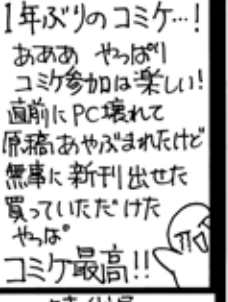 1年ぶりのコミケ…!
おああ やっぱり
コミケ参加は楽しい!
直前にPC壊れて
原稿あやぶまれたけど
無事に新刊出せた
買っていただけた
やっぱ
コミケ最高!!